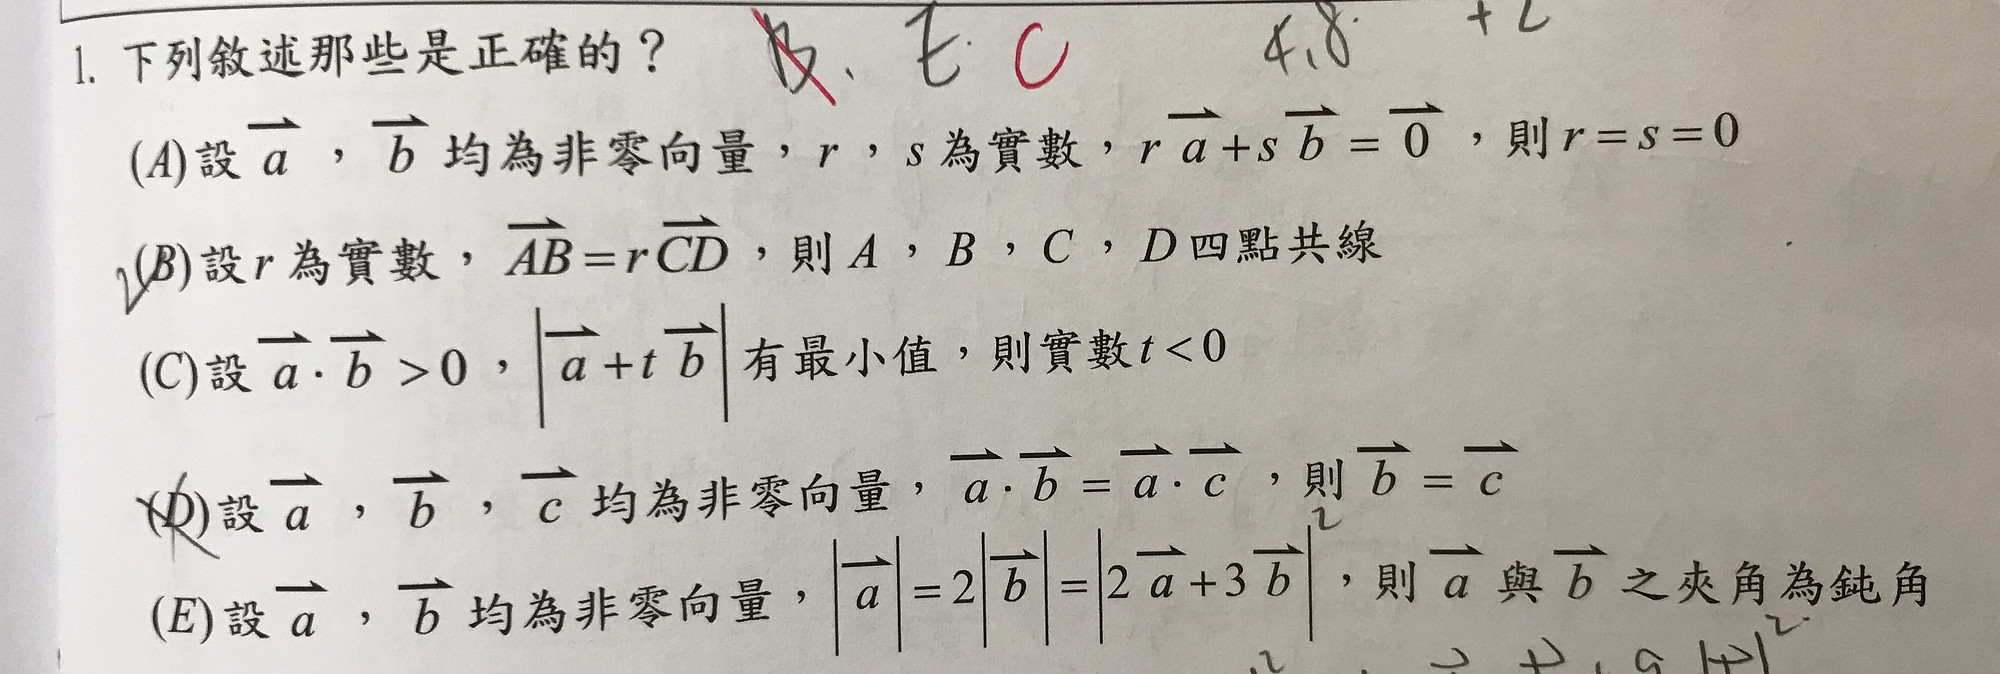 1. 下列敘述那些是正確的？ B. E. C 4.8. +2
(A)設 a⃗ ， b⃗ 均為非零向量，r ，s 為實數，r a⃗ + s b⃗ = 0⃗ ，則 r = s = 0
(B)設 r 為實數，AB⃗ = r CD⃗ ，則 A ，B ，C ，D 四點共線
(C)設 a⃗ · b⃗ > 0 ，| a⃗ + t b⃗ | 有最小值，則實數 t < 0
(D)設 a⃗ ， b⃗ ， c⃗ 均為非零向量， a⃗ · b⃗ = a⃗ · c⃗ ，則 b⃗ = c⃗
(E)設 a⃗ ， b⃗ 均為非零向量，| a⃗ | = 2| b⃗ | = |2 a⃗ + 3 b⃗ |² ，則 a⃗ 與 b⃗ 之夾角為鈍角